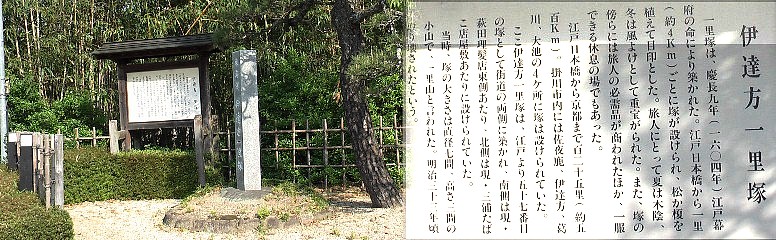 伊達方一里塚
一里塚は、慶長九年(一六〇四年)江戸幕
府の命により築かれた。江戸日本橋から一里
(約4Km)ごとに塚が設けられ、松か榎を
植えて目印とした。旅人にとって夏は木陰、
冬は風よけとして重宝がられた。また、塚の
傍らには旅人の必需品が商われたほか、一服
できる休息の場でもあった。
江戸日本橋から京都まで百二十五里(約五
百Km)。掛川市内には佐夜鹿、伊達方、葛
川、大池の4ケ所に塚は設けられていた。
ここ伊達方一里塚は、江戸より五十七番目
の塚として街道の両側に築かれ、南側は現・
萩田理髪店東側あたり、北側は現・三浦たば
こ店屋敷あたりに設けられていた。
当時、塚の大きさは直径七間、高さ三間の
小山で、一里山と言われた。明治三十三年頃
されたという。